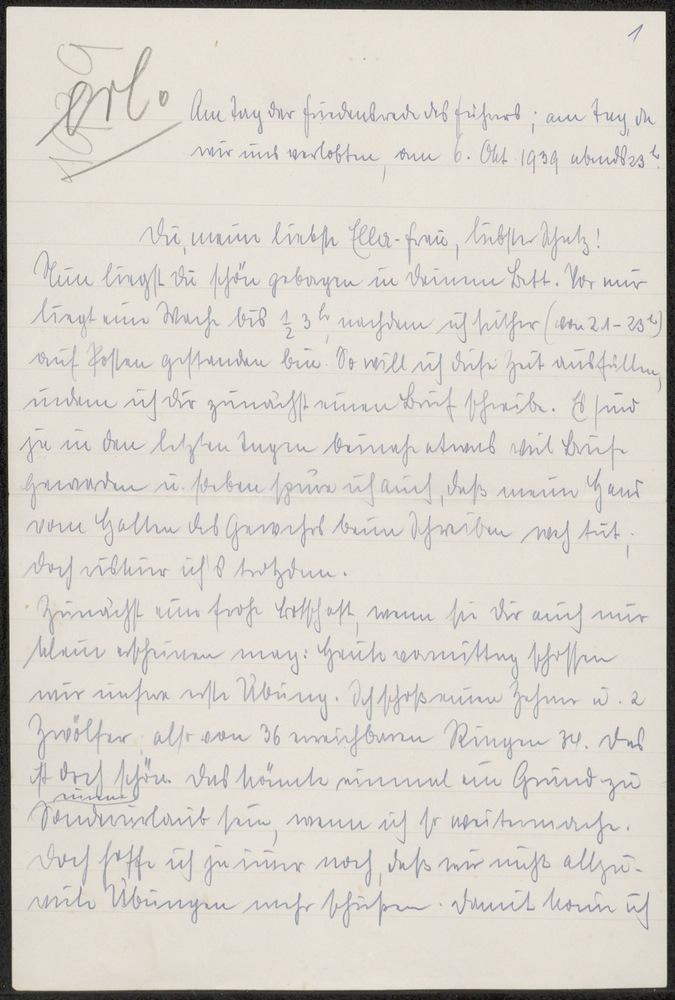 1
erl.
Am Tag der Friedensrede des Führers; am Tag, da
wir uns verlobten, am 6. Okt. 1939 abends 23 h.
Du, meine liebste Ella-Frau, liebster Schatz!
Nun liegst Du schön geborgen in Deinem Bett. Vor mir
liegt eine Wache bis ½ 3 h, nachdem ich seither (von 21-23 h)
auf Posten gestanden bin. So will ich diese Zeit ausfüllen,
indem ich Dir zunächst einen Brief schreibe. Es sind
ja in den letzten Tagen beinahe etwas viel Briefe
geworden u. soeben spüre ich auch, daß meine Hand
vom Halten des Gewehrs beim Schreiben weh tut;
doch riskier ich's trotzdem.
Zunächst eine frohe Botschaft, wenn sie Dir auch nur
klein erscheinen mag: Heute vormittag schossen
wir unsere erste Übung. Ich schoß einen Zehner u. 2
Zwölfer; also von 36 erreichbaren Ringen 34. Das
ist doch schön. Das könnte einmal ein Grund zu
einem
Sonderurlaub sein, wenn ich so weitermache.
Doch hoffe ich ja immer noch, daß wir nicht allzu-
viele Übungen mehr schießen. Damit kann ich